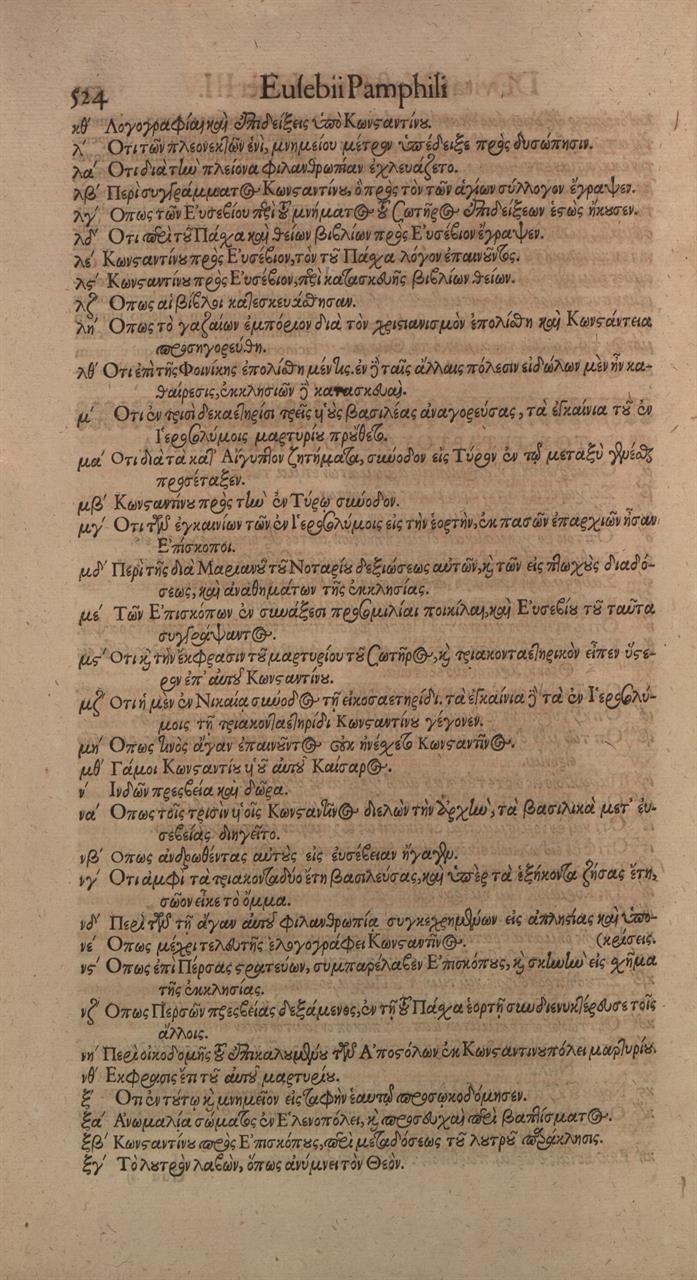 524 Eusebii Pamphili
κθʹ Λογογραφίαι καὶ ἐπιδείξεις ὑπὸ Κωνσταντίνου.
λʹ Ὅτι τῶν πλεονεκτῶν ἑνὶ, μνημείου μέτρον ὑπέδειξε πρὸς δυσώπησιν.
λαʹ Ὅτι διὰ τὴν πλείονα φιλανθρωπίαν ἐχλευάζετο.
λβʹ Περὶ συγγράμματος Κωνσταντίνου, ὃ πρὸς τὸν τῶν ἁγίων σύλλογον ἔγραψεν.
λγʹ Ὅπως τῶν Εὐσεβίου περὶ τοῦ μνήματος τοῦ Σωτῆρος ἐπιδείξεων ἑστὼς ἤκουσεν.
λδʹ Ὅτι περὶ τοῦ Πάσχα καὶ θείων βιβλίων πρὸς Εὐσέβιον ἔγραψεν.
λεʹ Κωνσταντίνου πρὸς Εὐσέβιον, τὸν τοῦ Πάσχα λόγον ἐπαινοῦντος.
λϛʹ Κωνσταντίνου πρὸς Εὐσέβιον, περὶ κατασκευῆς βιβλίων θείων.
λζʹ Ὅπως αἱ βίβλοι κατεσκευάσθησαν.
ληʹ Ὅπως τὸ γαζαίων ἐμπόριον διὰ τὸν χριστιανισμὸν ἐπολίσθη καὶ Κωνστάντεια
προσηγορεύθη.
λθʹ Ὅτι ἐπὶ τῆς Φοινίκης ἐπολίσθη μέν τις. ἐν δὲ ταῖς ἄλλαις πόλεσιν εἰδώλων μὲν ἦν κα-
θαίρεσις, ἐκκλησιῶν δὲ κατασκευαί.
μʹ Ὅτι ἐν τρισὶ δεκαετηρίσι τρεῖς υἱοὺς βασιλέας ἀναγορεύσας, τὰ ἐγκαίνια τοῦ ἐν
Ἱεροσολύμοις μαρτυρίου προύθετο.
μαʹ Ὅτι διὰ τὰ κατ' Αἴγυπτον ζητήματα, σύνοδον εἰς Τύρον ἐν τῷ μεταξὺ γενέσθαι
προσέταξεν.
μβʹ Κωνσταντίνου πρὸς τὴν ἐν Τύρῳ σύνοδον.
μγʹ Ὅτι τῶν ἐγκαινίων τῶν ἐν Ἱεροσολύμοις εἰς τὴν ἑορτὴν, ἐκ πασῶν ἐπαρχιῶν ἦσαν
Ἐπίσκοποι.
μδʹ Περὶ τῆς διὰ Μαριανοῦ τοῦ Νοταρίου δεξιώσεως αὐτῶν, καὶ τῶν εἰς πτωχοὺς διαδό-
σεως, καὶ ἀναθημάτων τῆς ἐκκλησίας.
μεʹ Τῶν Ἐπισκόπων ἐν συνάξεσι προσομιλίαι ποικίλαι, καὶ Εὐσεβίου τοῦ ταῦτα
συγγράψαντος.
μϛʹ Ὅτι καὶ τὴν ἔκφρασιν τοῦ μαρτυρίου τοῦ Σωτῆρος, καὶ τριακονταετηρικὸν εἶπεν ὕστε-
ρον ἐπ' αὐτοῦ Κωνσταντίνου.
μζʹ Ὅτι ἡ μὲν ἐν Νικαίᾳ σύνοδος τῇ εἰκοσαετηρίδι. τὰ ἐγκαίνια δὲ τὰ ἐν Ἱεροσολύ-
μοις τῇ τριακονταετηρίδι Κωνσταντίνου γέγονεν.
μηʹ Ὅπως τινὸς ἄγαν ἐπαινοῦντος οὐκ ἠνέσχετο Κωνσταντῖνος.
μθʹ Γάμοι Κωνσταντίου υἱοῦ αὐτοῦ Καίσαρος.
νʹ Ἰνδῶν πρεσβεία καὶ δῶρα.
ναʹ Ὅπως τοῖς τρισὶν υἱοῖς Κωνσταντῖνος διελὼν τὴν ἀρχὴν, τὰ βασιλικὰ μετ' εὐ-
σεβείας διηγεῖτο.
νβʹ Ὅπως ἀνδρωθέντας αὐτοὺς εἰς εὐσέβειαν ἤγαγεν.
νγʹ Ὅτι ἀμφὶ τὰ τριακονταδύο ἔτη βασιλεύσας, καὶ ὑπὲρ τὰ ἑξήκοντα ζήσας ἔτη,
σῶον εἶχε τὸ ὄμμα.
νδʹ Περὶ τῶν τῇ ἄγαν αὐτοῦ φιλανθρωπίᾳ συγκεχρημένων εἰς ἀπληστίας καὶ ὑπο-
νεʹ Ὅπως μέχρι τελευτῆς ἐλογογράφει Κωνσταντῖνος. (κρίσεις.
νϛʹ Ὅπως ἐπὶ Πέρσας στρατεύων, συμπαρέλαβεν Ἐπισκόπους, καὶ σκηνὴν εἰς σχῆμα
τῆς ἐκκλησίας.
νζʹ Ὅπως Περσῶν πρεσβείας δεξάμενος, ἐν τῇ τοῦ Πάσχα ἑορτῇ συνδιενυκτέρευσε τοῖς
ἄλλοις.
νηʹ Περὶ οἰκοδομῆς τοῦ ἐπικαλουμένου τῶν Ἀποστόλων ἐν Κωνσταντινουπόλει μαρτυρίου.
νθʹ Ἔκφρασις ἔτι τοῦ αὐτοῦ μαρτυρίου.
ξʹ Ὅτι ἐν τούτῳ καὶ μνημεῖον εἰς ταφὴν ἑαυτῷ προσωκοδόμησεν.
ξαʹ Ἀνωμαλία σώματος ἐν Ἑλενοπόλει, καὶ προσευχαὶ περὶ βαπτίσματος.
ξβʹ Κωνσταντίνου πρὸς Ἐπισκόπους, περὶ μεταδόσεως τοῦ λουτροῦ παράκλησις.
ξγʹ Τὸ λουτρὸν λαβὼν, ὅπως ἀνύμνει τὸν Θεόν.